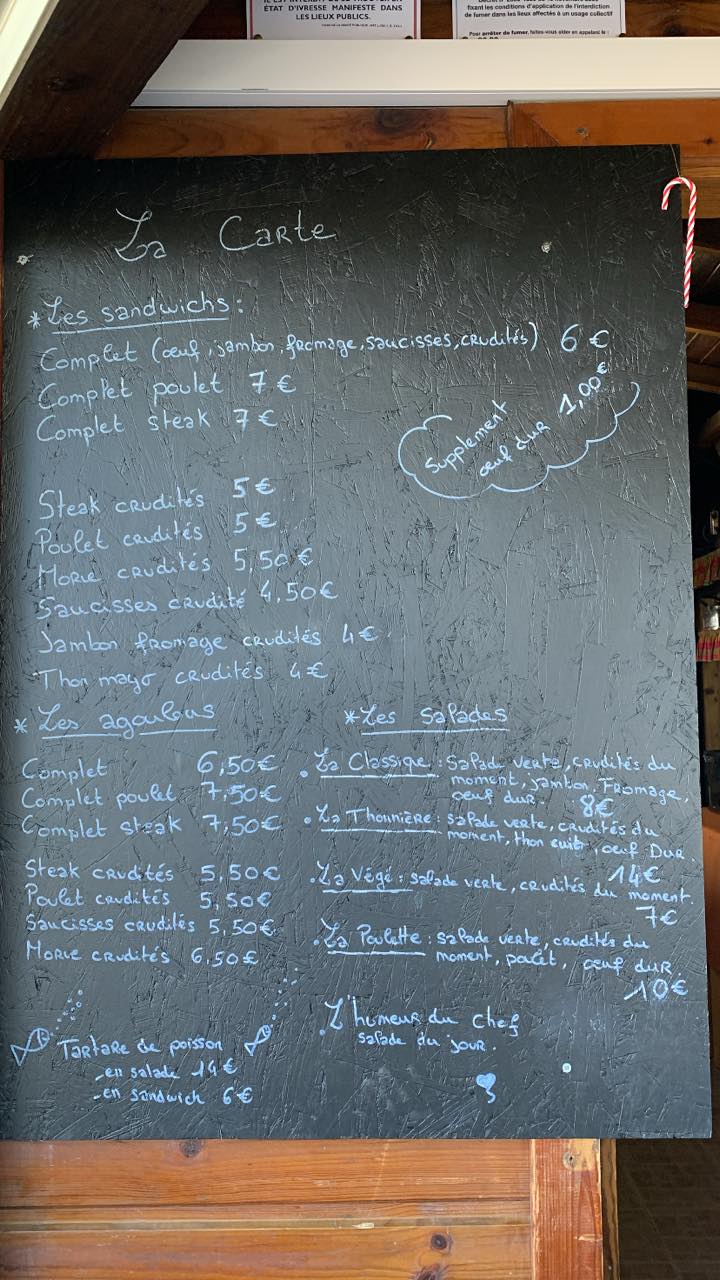 ÉTAT D'IVRESSE MANIFESTE DANS
LES LIEUX PUBLICS.
fixant les conditions d'application de l'interdiction
de fumer dans les lieux affectés à un usage collectif
Pour arrêter de fumer, faites-vous aider en appelant le :
La Carte
*Les sandwichs :
Complet (œuf, jambon, fromage, saucisses, crudités) 6 €
Complet poulet 7 €
Complet steak 7 €
Supplement
œuf dur 1,00 €
Steak crudités 5 €
Poulet crudités 5 €
Morue crudités 5,50 €
Saucisses crudité 4,50€
Jambon fromage crudités 4€
Thon mayo crudités 4€
* Les agoulous
Complet 6,50€
Complet poulet 7,50€
Complet steak 7,50€
Steak crudités 5,50€
Poulet crudités 5,50€
Saucisses crudités 5,50€
Morue crudités 6,50€
Tartare de poisson
- en salade 14€
- en sandwich 6€
*Les salades
. La Classique : salade verte, crudités du
moment, jambon, Fromage,
oeuf dur. 8€
. La Thonnière : salade verte, crudités du
moment, thon cuit, oeuf Dur.
14€
. La Végé : salade verte, crudités du moment.
7€
. La Poulette : salade verte, crudités du
moment, poulet, œuf dur
10€
. L'humeur du chef
salade du jour.